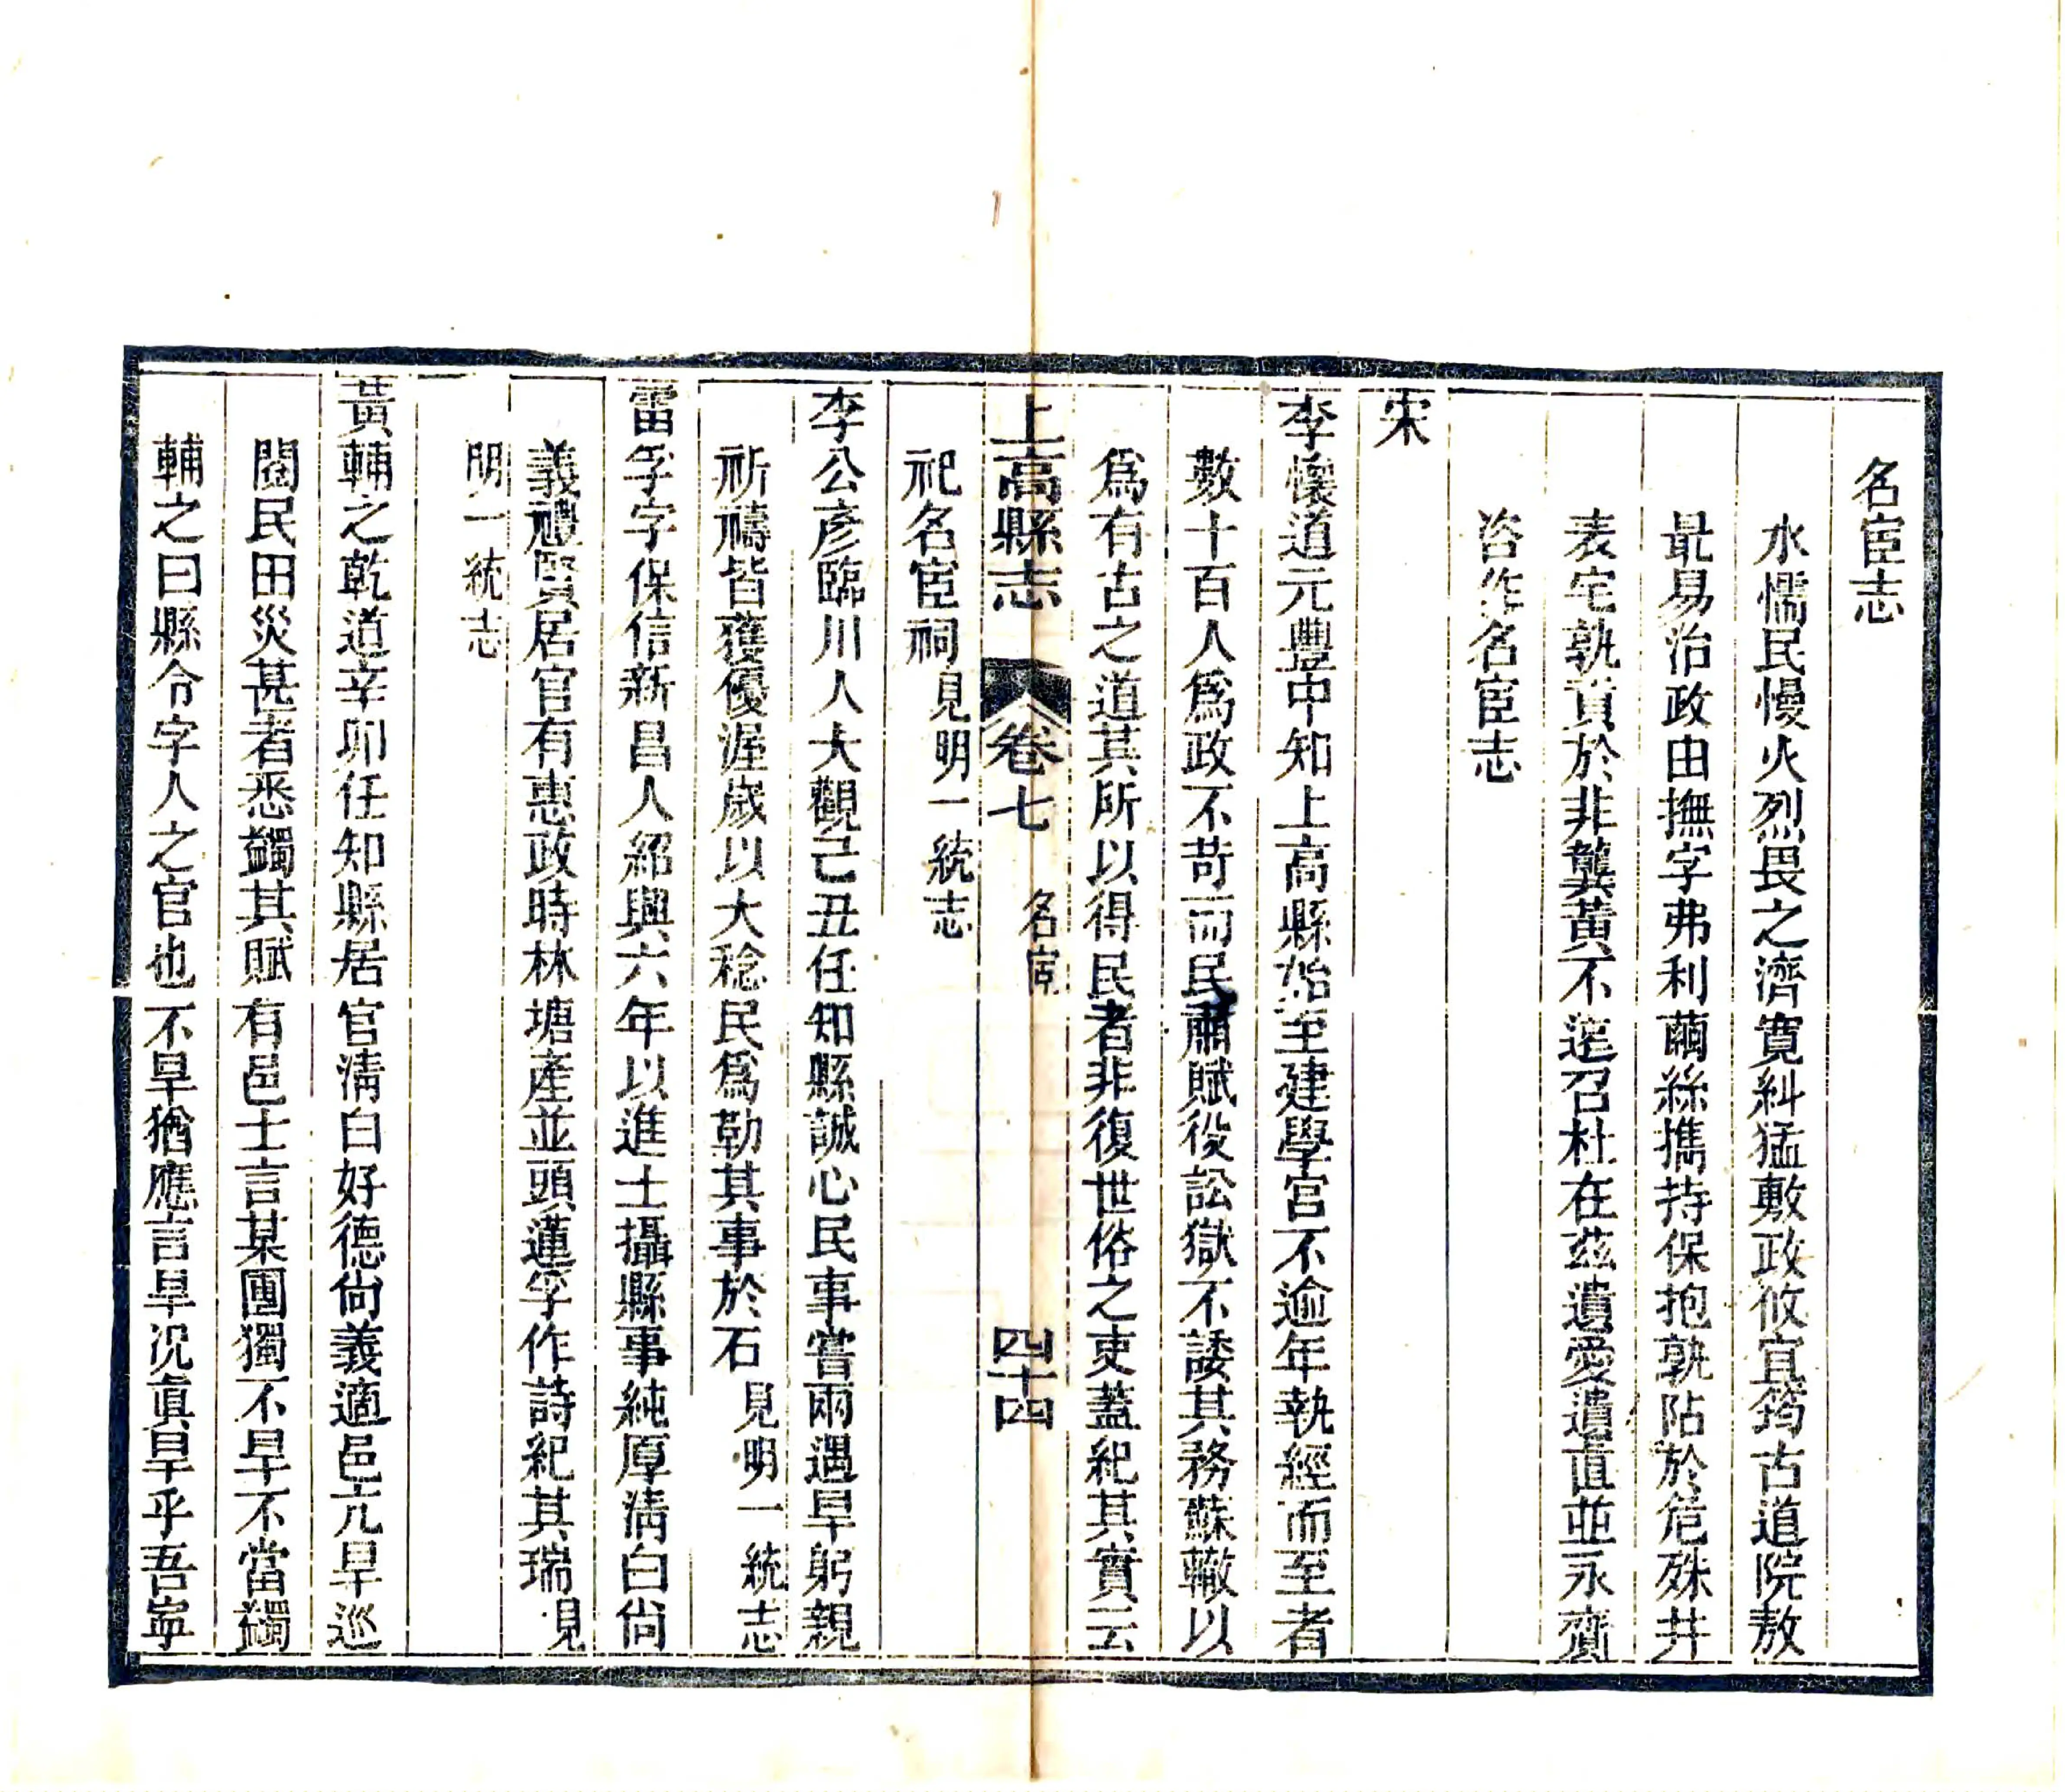 名宦志
水懦民慢火烈畏之濟寛糾猛敷政攸宜筠古道院敖
最易治政由撫字弗利繭絲擕持保抱孰阽於危殊井
表宅孰責於非龔黃不遠召杜在茲遺愛遺直並永齎
咨作名宦志
宋
李懷道元豐中知上高縣始至建學宫不逾年執經而至者
數十百人爲政不苛而民肅賦役訟獄不諉其務蘇轍以
爲有古之道其所以得民者非復世俗之吏蓋紀其實云
祀名宦祠見明一統志
上高縣志 卷七 名宦 四十四
李公彥臨川人大觀己丑任知縣誠心民事嘗雨遇旱躬親
祈禱皆獲優渥歲以大稔民爲勒其事於石見明一統志
雷孚字保信新昌人紹興六年以進士攝縣事純厚清白尙
義禮賢居官有惠政時林塘產並頭蓮孚作詩紀其瑞見
明一統志
黃輔之乾道辛卯任知縣居官清白好德尙義適邑亢旱巡
閱民田災甚者悉蠲其賦有邑士言某圃獨不旱不當蠲
輔之曰縣令字人之官也不旱猶應言旱況眞旱乎吾寧